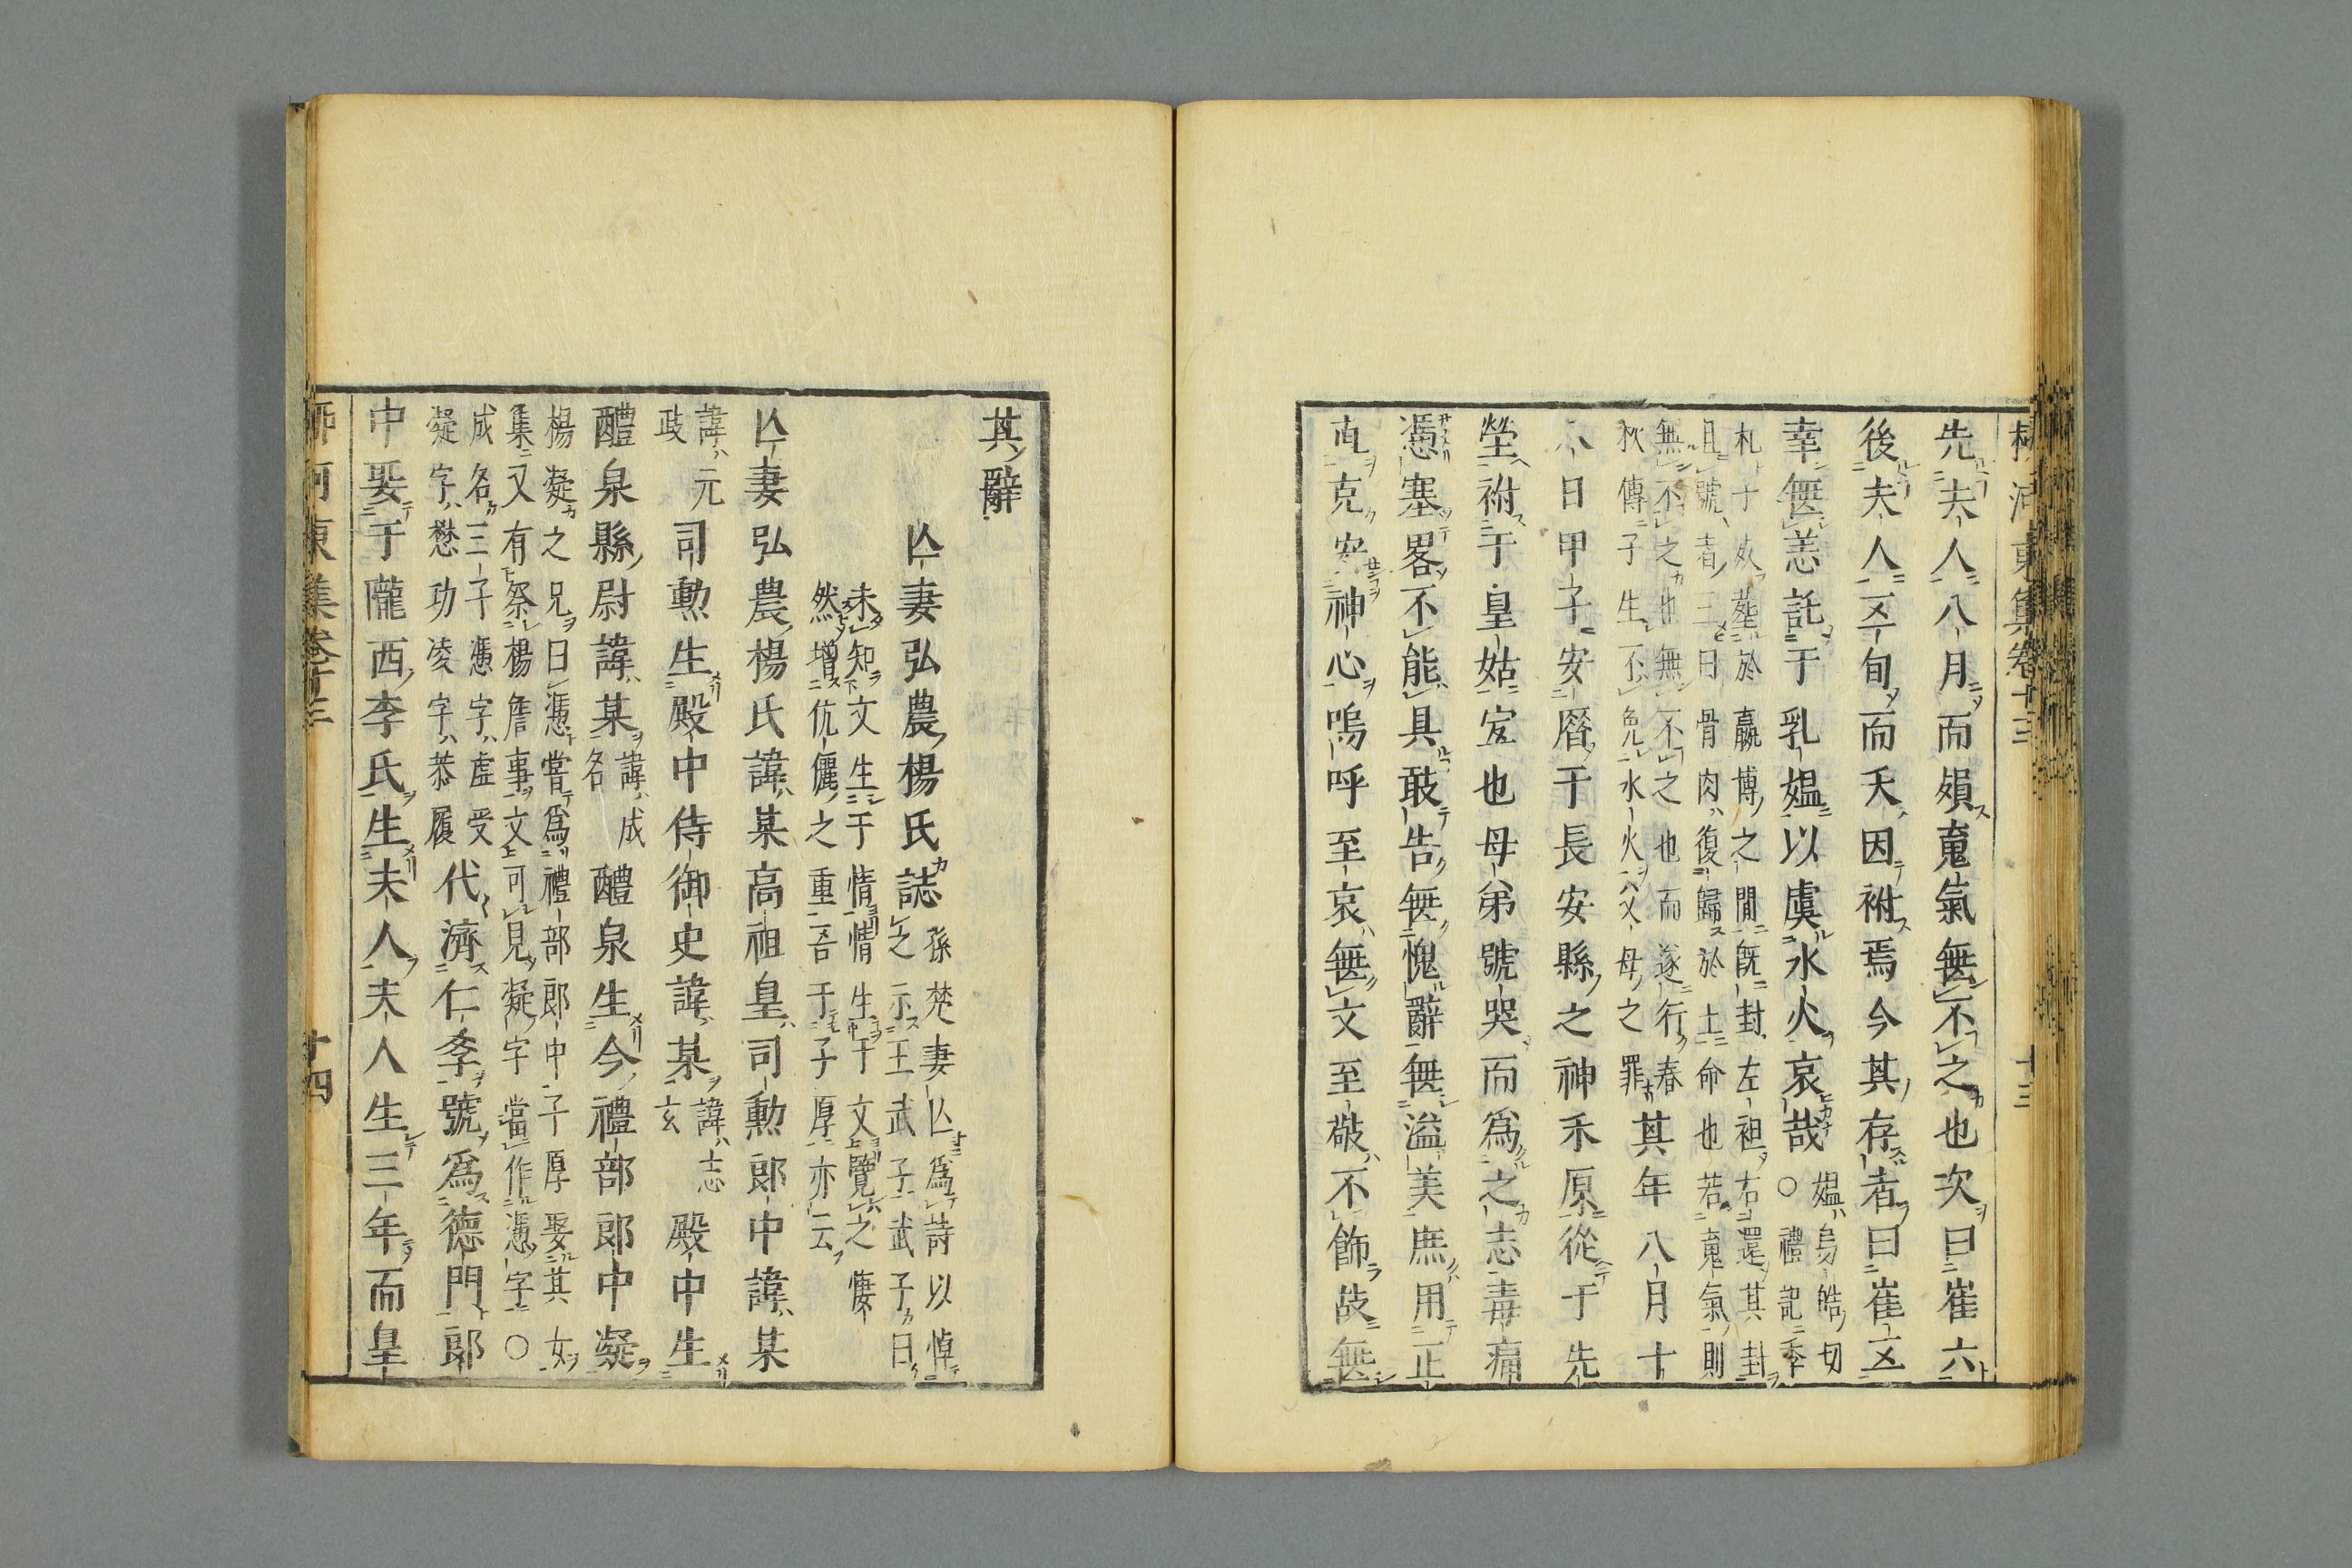 柳河東集卷十三
十三
先夫人八月而殞䰟氣無不之也次曰崔六
後夫人五旬而夭因祔焉今其存者曰崔五
幸無恙託于乳媼以虞水火哀哉
媼烏皓切
○禮記季
札子奴葬於嬴博之間既封左袒右還其封
且號者三曰骨肉復歸於土命也若䰟氣則
無不之也無不之也而遂行春
秋傳子生不免水火父母之罪
其年八月十
日甲子安厝于長安縣之神禾原從于先
塋祔于皇姑宜也母弟號哭而爲之志毒痛
憑塞畧不能具敢告無愧辭無溢美庶用正
直克安神心嗚呼至哀無文至敬不飾故無
其辭
亡妻弘農楊氏誌
孫楚妻亡爲詩以悼
之示王武子武子曰
未知文生于情情生于文覽之悽
然增伉儷之重吾于子厚亦云
亡妻弘農楊氏諱某高祖皇司勲郎中諱某
諱元
政
司勲生殿中侍御史諱某
諱志
玄
殿中生
醴泉縣尉諱某
諱成
名
醴泉生今禮部郎中凝
楊凝之兄曰憑嘗爲禮部郎中子厚娶其女
集又有祭楊詹事文可見凝字當作憑字○
成名三子憑字虛受
凝字懋功凌字恭履
代濟仁孝號爲德門郎
中娶于隴西李氏生夫人夫人生三年而皇
柳河東集卷十三
十四